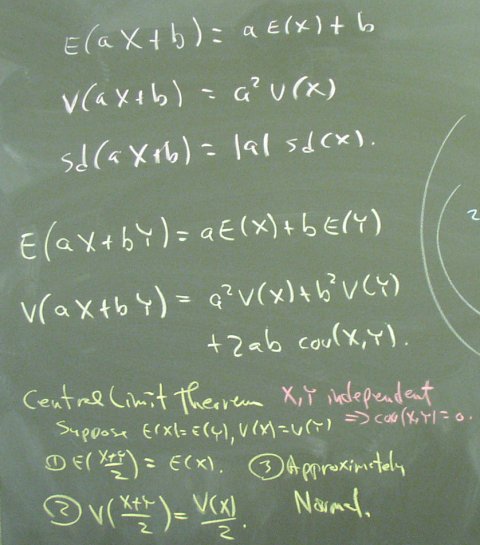 E(aX+b) = aE(X)+b
V(aX+b) = a²V(X)
sd(aX+b) = |a| sd(X).
E(aX+bY) = aE(X)+bE(Y)
V(aX+bY) = a²V(X)+b²V(Y)
+2ab cov(X,Y).
Central Limit Theorem X,Y independent
⇒ cov(X,Y)=0.
Suppose E(X)=E(Y), V(X)=V(Y)
① E((X+Y)/2) = E(X). ③ Approximately
② V((X+Y)/2) = V(X)/2. Normal.
2